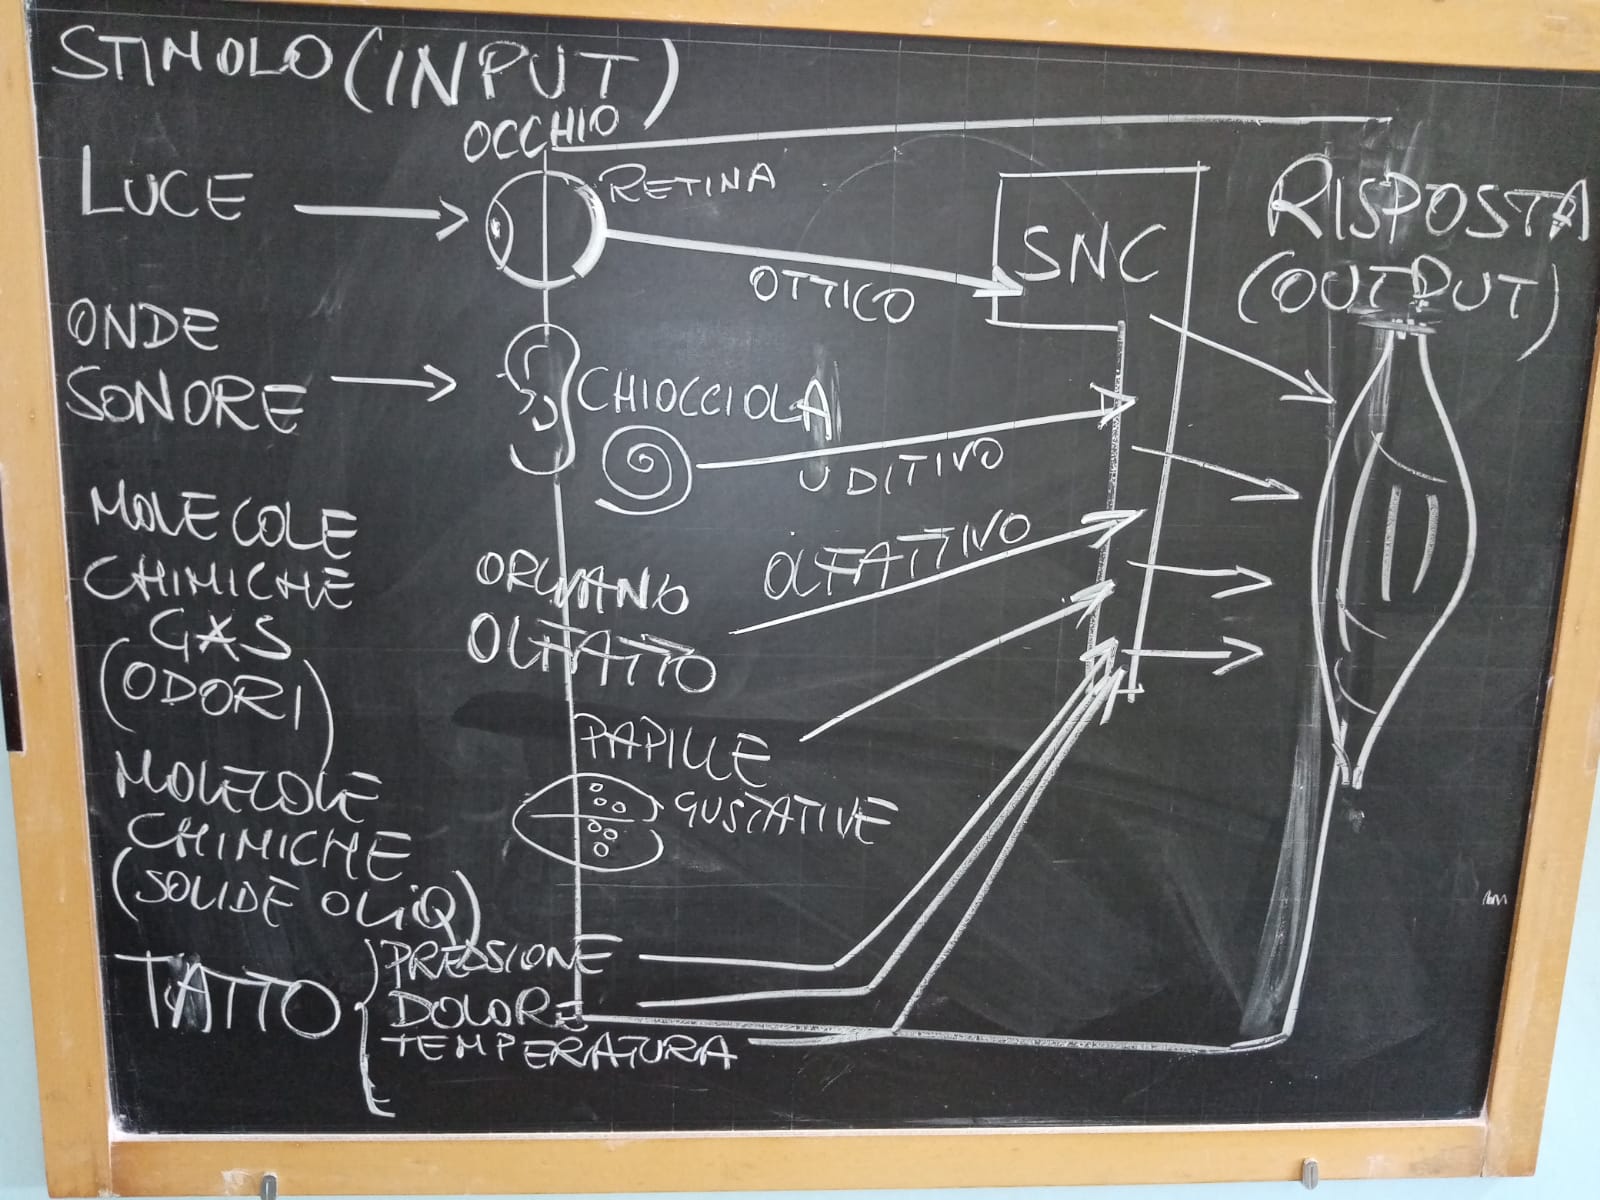 STIMOLO (INPUT)
OCCHIO
LUCE
RETINA
SNC
RISPOSTA
(OUTPUT)
OTTICO
ONDE
SONORE
CHIOCCIOLA
UDITIVO
MOLECOLE
CHIMICHE
GAS
(ODORI)
ORGANO
OLFATTO
OLFATTIVO
MOLECOLE
CHIMICHE
(SOLIDE O LIQ)
PAPILLE
GUSTATIVE
TATTO
PRESSIONE
DOLORE
TEMPERATURA